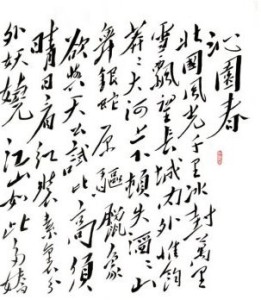 沁園春
北國風光千里冰封萬里
雪飄望長城内外惟餘
莽々大河上下頓失滔々山
舞銀蛇原驅臘象
欲與天公試比高須
晴日看紅裝素裹分
外妖嬈江山如此多嬌